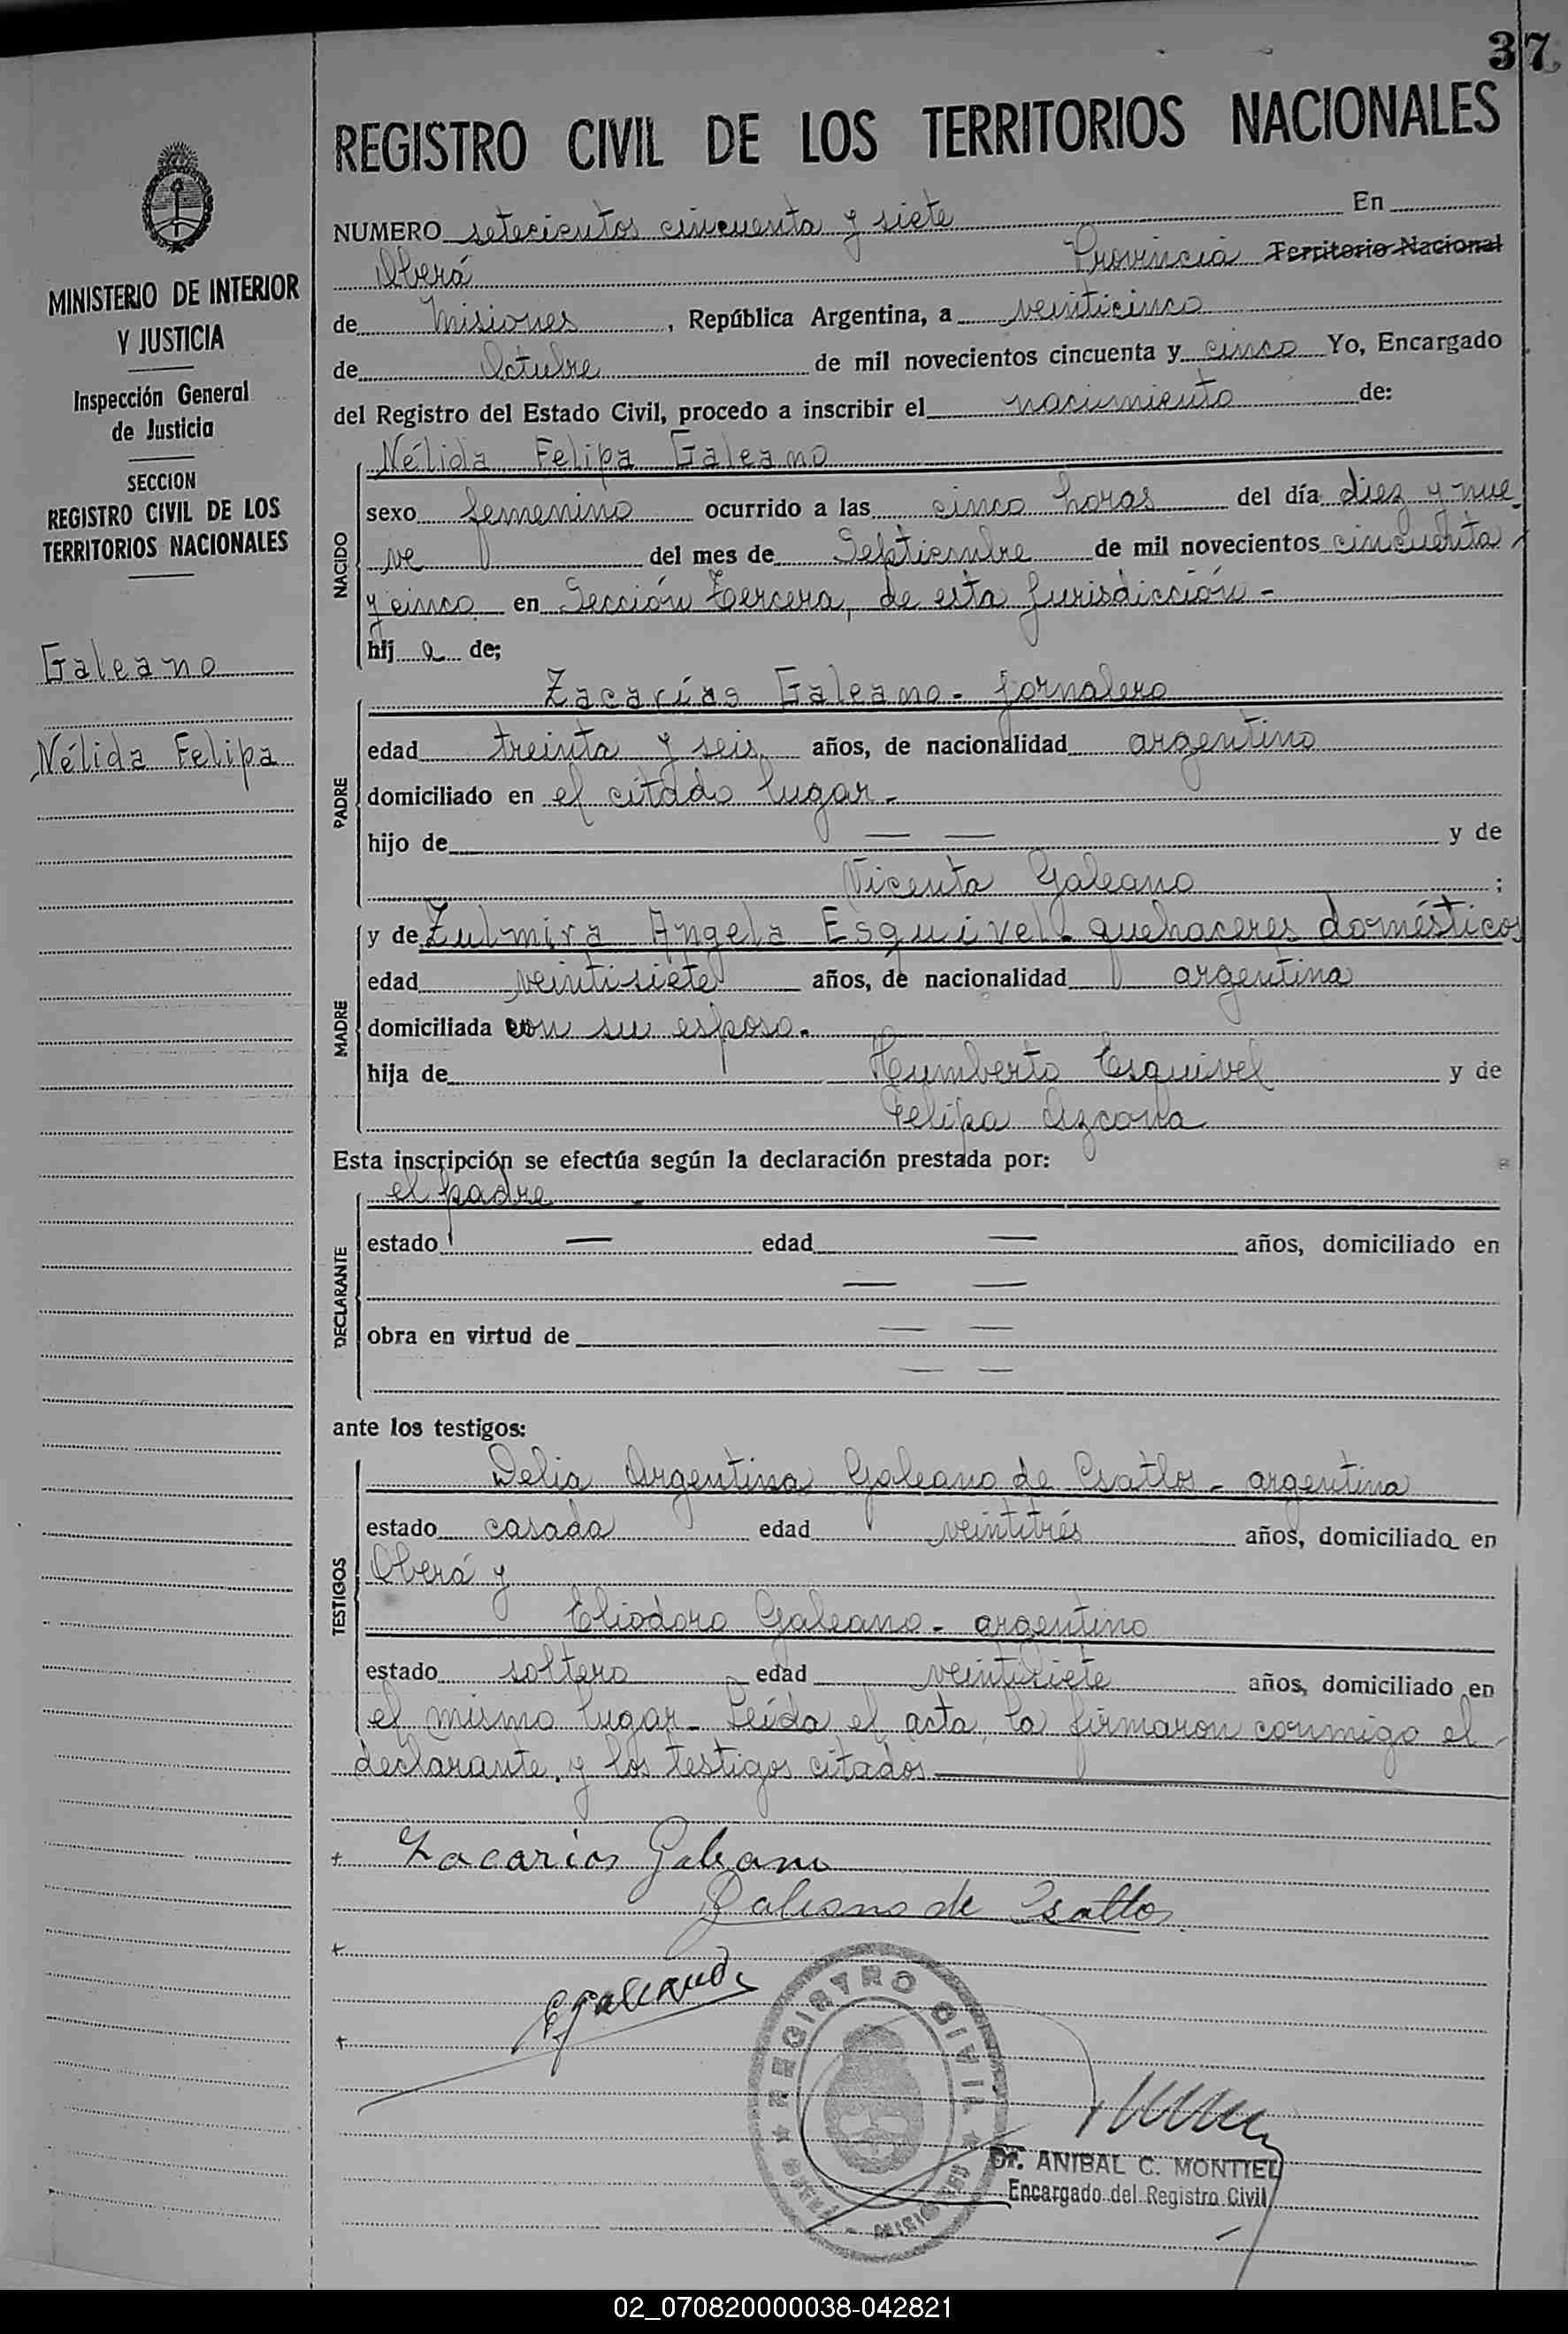 37
REGISTRO CIVIL DE LOS TERRITORIOS NACIONALES
MINISTERIO DE INTERIOR
Y JUSTICIA
Inspección General
de Justicia
SECCION
REGISTRO CIVIL DE LOS
TERRITORIOS NACIONALES
Galeano
Nélida Felipa
NUMERO setecientos cincuenta y siete En
Oberá Provincia Territorio Nacional
de Misiones, República Argentina, a veinticinco
de Octubre de mil novecientos cincuenta y cinco Yo, Encargado
del Registro del Estado Civil, procedo a inscribir el nacimiento de:
NACIDO
Nélida Felipa Galeano
sexo femenino ocurrido a las cinco horas del día diez y nue-
ve del mes de Septiembre de mil novecientos cincuenta
y cinco en Sección Tercera, de esta jurisdicción-
hij a de;
PADRE
Zacarías Galeano- jornalero
edad treinta y seis años, de nacionalidad argentino
domiciliado en el citado lugar-
hijo de — — y de
Vicenta Galeano ;
MADRE
y de Zulmira Angela Esquivel- quehaceres domésticos
edad veintisiete años, de nacionalidad argentina
domiciliada con su esposo-
hija de Humberto Esquivel y de
Felipa Azcona
Esta inscripción se efectúa según la declaración prestada por:
DECLARANTE
el padre -
estado — edad — años, domiciliado en
— —
obra en virtud de — —
— —
ante los testigos:
TESTIGOS
Delia Argentina Galeano de Csatlos- argentina
estado casada edad veintitrés años, domiciliada en
Oberá y
Eliodoro Galeano- argentino
estado soltero edad veintisiete años, domiciliado en
el mismo lugar- Leída el acta, la firmaron conmigo el
declarante, y los testigos citados
Zacarias Galeano
Galeano de Csatlos
EGaleano
REGISTRO CIVIL
OBERÁ - MISIONES
Dr. ANIBAL C. MONTIEL
Encargado del Registro Civil
02_070820000038-042821